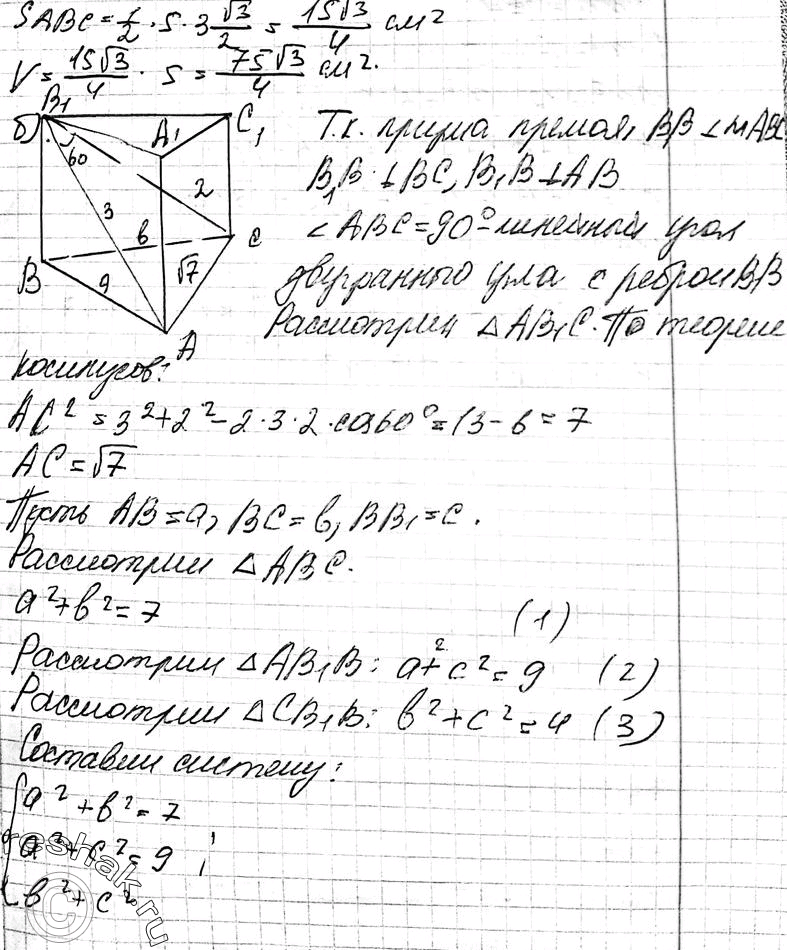 SABC = 1/2 · 5 · 3 √3/2 = 15√3/4 см²
V = 15√3/4 · 5 = 75√3/4 см².
б) B₁ A₁ C₁
60
3 2
B a b √7 C
A
Т.к. призма прямая, BB ⊥ ABC
B₁B ⊥ BC, B₁B ⊥ AB
∠ ABC = 90° – линейный угол
двугранного угла с ребром BB
Рассмотрим △AB₁C. По теореме
косинусов:
AC² = 3² + 2² – 2 · 3 · 2 · cos 60° = 13 – 6 = 7
AC = √7
Пусть AB = a, BC = b, BB₁ = c.
Рассмотрим △ABC.
a² + b² = 7 (1)
Рассмотрим △AB₁B: a² + c² = 9 (2)
Рассмотрим △CB₁B: b² + c² = 4 (3)
Составим систему:
{ a² + b² = 7
a² + c² = 9 ;
b² + c²
reshak.ru